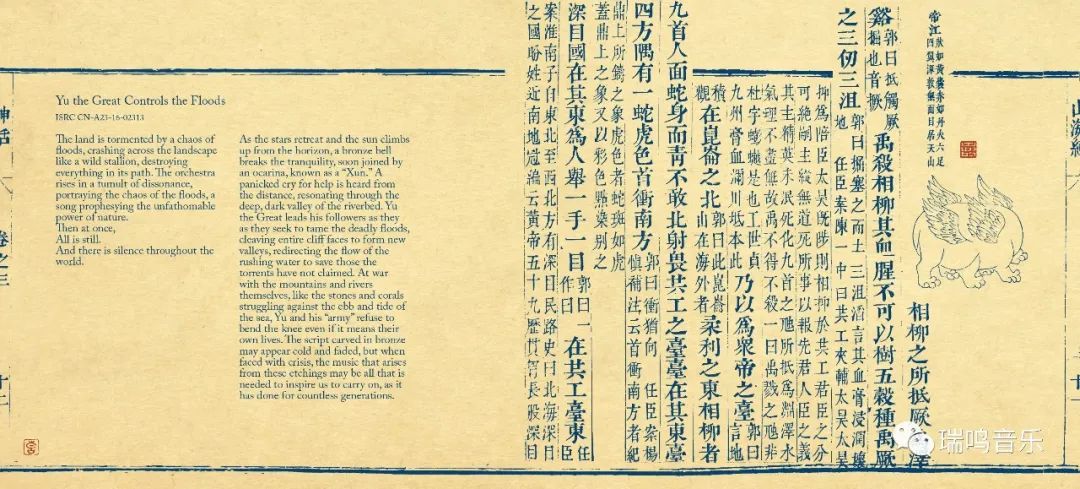 Yu the Great Controls the Floods
ISRC CN-A23-16-02313
The land is tormented by a chaos of
floods, crashing across the landscape
like a wild stallion, destroying
everything in its path. The orchestra
rises in a tumult of dissonance,
portraying the chaos of the floods, a
song prophesying the unfathomable
power of nature.
Then at once,
All is still.
And there is silence throughout the
world.
As the stars retreat and the sun climbs
up from the horizon, a bronze bell
breaks the tranquility, soon joined by
an ocarina, known as a “Xun.” A
panicked cry for help is heard from
the distance, resonating through the
deep, dark valley of the riverbed. Yu
the Great leads his followers as they
as they seek to tame the deadly floods,
cleaving entire cliff faces to form new
valleys, redirecting the flow of the
rushing water to save those the
torrents have not claimed. At war
with the mountains and rivers
themselves, like the stones and corals
struggling against the ebb and tide of
the sea, Yu and his “army” refuse to
bend the knee even if it means their
own lives. The script carved in bronze
may appear cold and faded, but when
faced with crisis, the music that arises
from these etchings may be all that is
needed to inspire us to carry on, as it
has done for countless generations.
山海經
帝江
狀如黃囊赤如丹火六足
四翼渾敦無面目居天山
相柳之所抵厥 澤
谿郭曰抵觸厥掘也音撅禹殺相柳其血腥不可以樹五穀種禹厥
之三仞三沮郭曰掘塞之而土三沮滔言其血膏浸潤壞地任臣案陳一中曰共工來輔太昊太昊
抑為陪臣太昊既陟則相抑於共工君臣之分
無道死所事以報先君人臣之義
其主精英未泯死化九首之虺所抵為淵澤水
氣理不盡無故禹不得不殺一曰禹戮之虺非
杜宇 是也
九州膏血 川坻本此乃以為眾帝之臺郭曰言地
積觀在崑崙之北郭曰此崑崙山在海外者柔利之東相柳者
九首人面蛇身而青不敢北射畏共工之臺臺在其東臺
四方隅有一蛇虎色首衝南方郭曰衝猶向任臣案楊慎補注云首衝南方者紀
鼎上所鑄之象虎色者蛇斑如虎
蓋鼎上之象又以彩色點染別之
深目國在其東為人舉一手一目郭曰一作曰在共工臺東任臣
案淮南子自東北至西北方有深目民路史曰北海深目
之國盼姓近南地
神話
卷之三
瑞鸣音乐